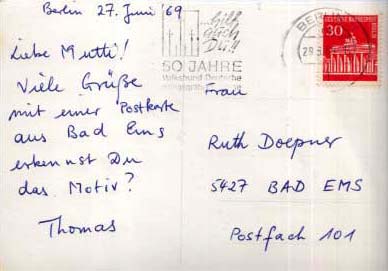 Berlin 27. Juni '69
Liebe Mutti!
Viele Grüße
mit einer Postkarte
aus Bad Ems
erkennst Du
das Motiv?
Thomas
...hilf
auch
Du!!
50 JAHRE
Volksbund Deutsche
BERLIN
DEUTSCHE BUNDESPOST
30
Frau
Ruth Doepner
5427 BAD EMS
Postfach 101